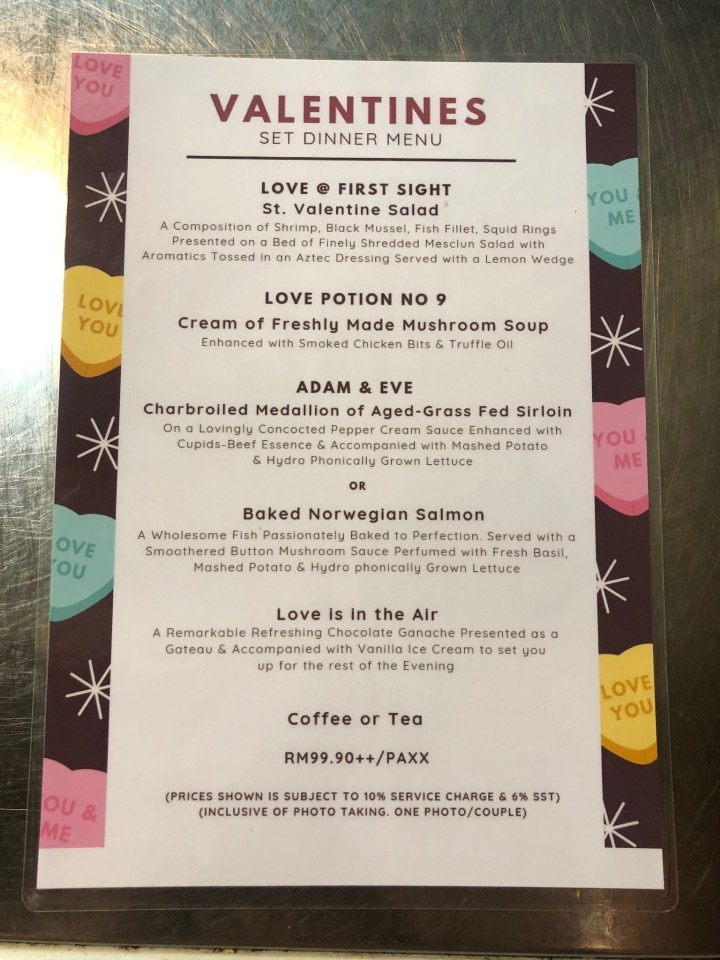 VALENTINES
SET DINNER MENU
LOVE @ FIRST SIGHT
St. Valentine Salad
A Composition of Shrimp, Black Mussel, Fish Fillet, Squid Rings
Presented on a Bed of Finely Shredded Mesclun Salad with
Aromatics Tossed in an Aztec Dressing Served with a Lemon Wedge
LOVE POTION NO 9
Cream of Freshly Made Mushroom Soup
Enhanced with Smoked Chicken Bits & Truffle Oil
ADAM & EVE
Charbroiled Medallion of Aged-Grass Fed Sirloin
On a Lovingly Concocted Pepper Cream Sauce Enhanced with
Cupids-Beef Essence & Accompanied with Mashed Potato
& Hydro Phonically Grown Lettuce
OR
Baked Norwegian Salmon
A Wholesome Fish Passionately Baked to Perfection. Served with a
Smoothered Button Mushroom Sauce Perfumed with Fresh Basil,
Mashed Potato & Hydro phonically Grown Lettuce
Love is in the Air
A Remarkable Refreshing Chocolate Ganache Presented as a
Gateau & Accompanied with Vanilla Ice Cream to set you
up for the rest of the Evening
Coffee or Tea
RM99.90++/PAXX
(PRICES SHOWN IS SUBJECT TO 10% SERVICE CHARGE & 6% SST)
(INCLUSIVE OF PHOTO TAKING. ONE PHOTO/COUPLE)
LOVE
YOU
LOVE
YOU
OVE
YOU
OU &
ME
YOU &
ME
YOU &
ME
LOVE
YOU